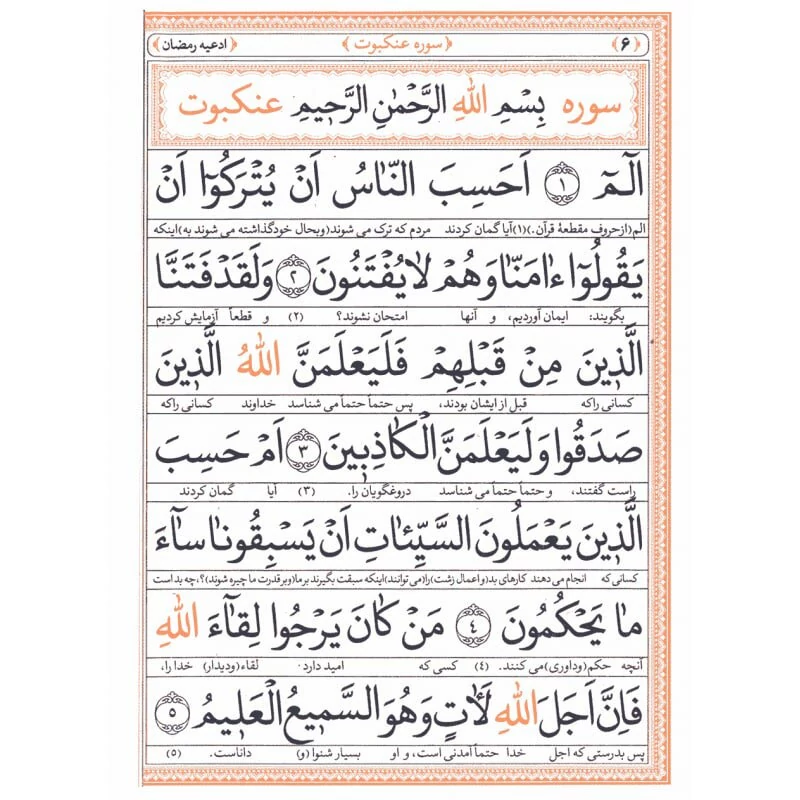 ﴿۶﴾ ﴿سوره عنکبوت﴾ ﴿ادعیه رمضان﴾
سوره بِسْمِ اللهِ الرَّحْمٰنِ الرَّحٖيمِ عنکبوت
الٓمٓ ﴿۱﴾ اَحَسِبَ النّاسُ اَنْ يُتْرَكُوٓا اَنْ
الم(ازحروف مقطعۀ قرآن.)(۱)آیا گمان کردند مردم که ترک می شوند(وبحال خودگذاشته می شوند به)اینکه
يَقُولُوٓا ءٰامَنّٰا وَهُمْ لٰا يُفْتَنُونَ ﴿۲﴾ وَلَقَدْ فَتَنَّا
بگویند: ایمان آوردیم، و آنها امتحان نشوند؟ (۲) و قطعاً آزمایش کردیم
الَّذٖينَ مِنْ قَبْلِهِمْ فَلَيَعْلَمَنَّ اللهُ الَّذٖينَ
کسانی راکه قبل از ایشان بودند، پس حتماً حتماً می شناسد خداوند کسانی راکه
صَدَقُوا وَلَيَعْلَمَنَّ الْكٰاذِبٖينَ ﴿۳﴾ اَمْ حَسِبَ
راست گفتند، و حتماً حتماً می شناسد دروغگویان را. (۳) آیا گمان کردند
الَّذٖينَ يَعْمَلُونَ السَّيِّئٰاتِ اَنْ يَسْبِقُونٰا سٰٓاءَ
کسانی که انجام می دهند کارهای بد(و اعمال زشت)را(می توانند)اینکه سبقت بگیرند برما(وبرقدرت ما چیره شوند)؟، چه بد است
مٰا يَحْكُمُونَ ﴿۴﴾ مَنْ كٰانَ يَرْجُوا لِقٰٓاءَ اللهِ
آنچه حکم(وداوری)می کنند. (۴) کسی که امید دارد لقاء(ودیدار) خدا را،
فَاِنَّ اَجَلَ اللهِ لَاٰتٍ وَهُوَ السَّمٖيعُ الْعَلٖيمُ ﴿۵﴾
پس بدرستی که اجل خدا حتماً آمدنی است، و او بسیار شنوا (و) داناست. (۵)